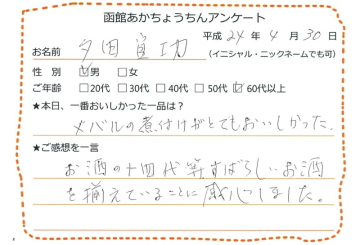 函館あかちょうちんアンケート
平成 24 年 4 月 30 日
お名前 夕田 宜功
(イニシャル・ニックネームでも可)
性別 ☑男 □女
ご年齢 □20代 □30代 □40代 □50代 ☑60代以上
★本日、一番おいしかった一品は?
メバルの煮付けがとてもおいしかった。
★ご感想を一言
お酒の十四代等すばらしいお酒
を揃えていることに感心しました。